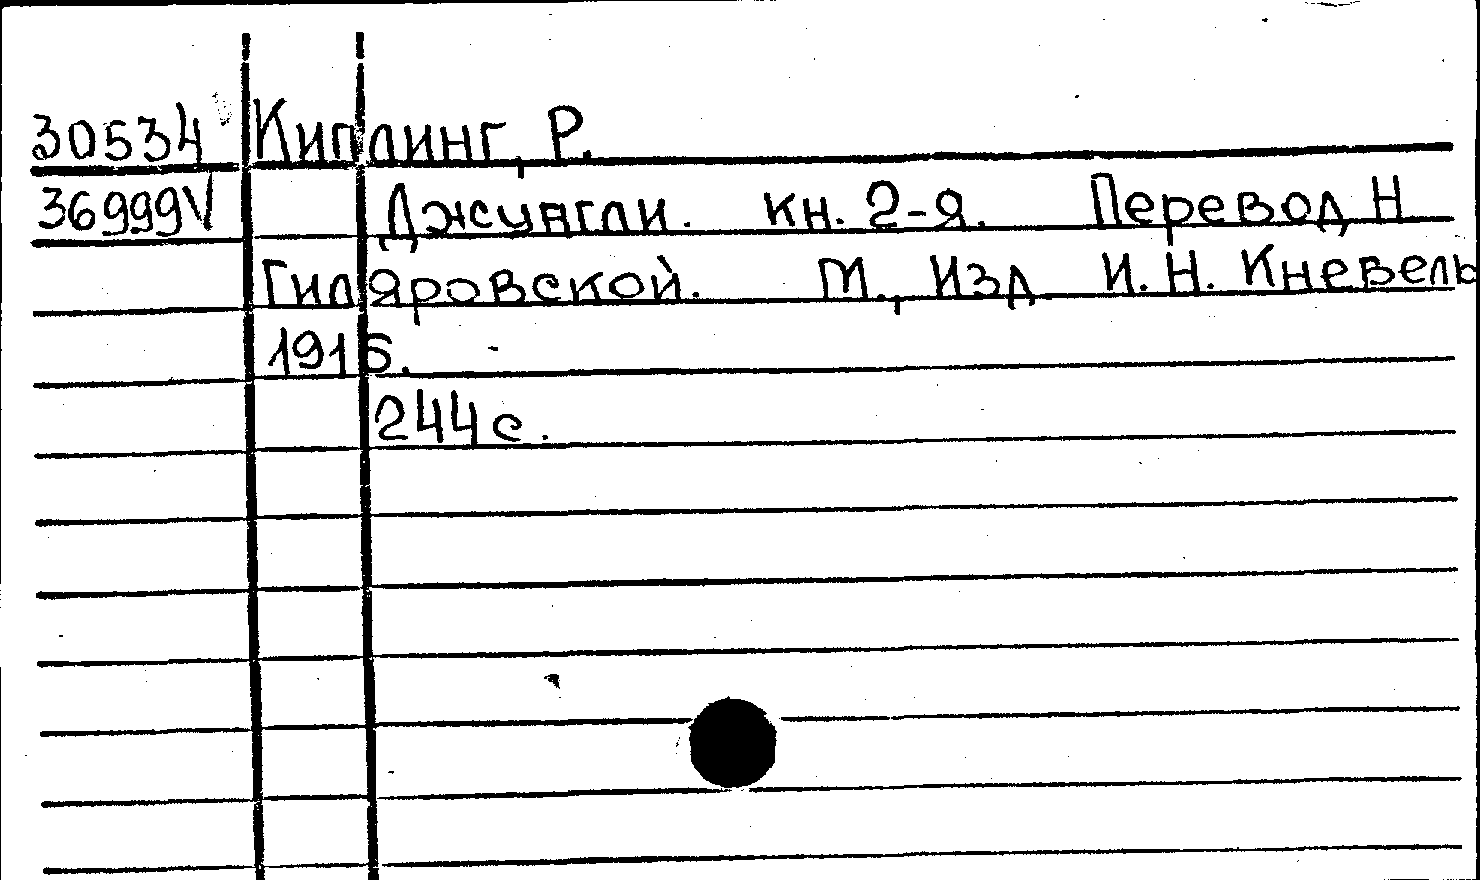 30534 Киплинг, Р.
36999V Джунгли. кн. 2-я. Перевод Н
Гиляровской. М., Изд И. Н. Кневель
1915.
244 с.